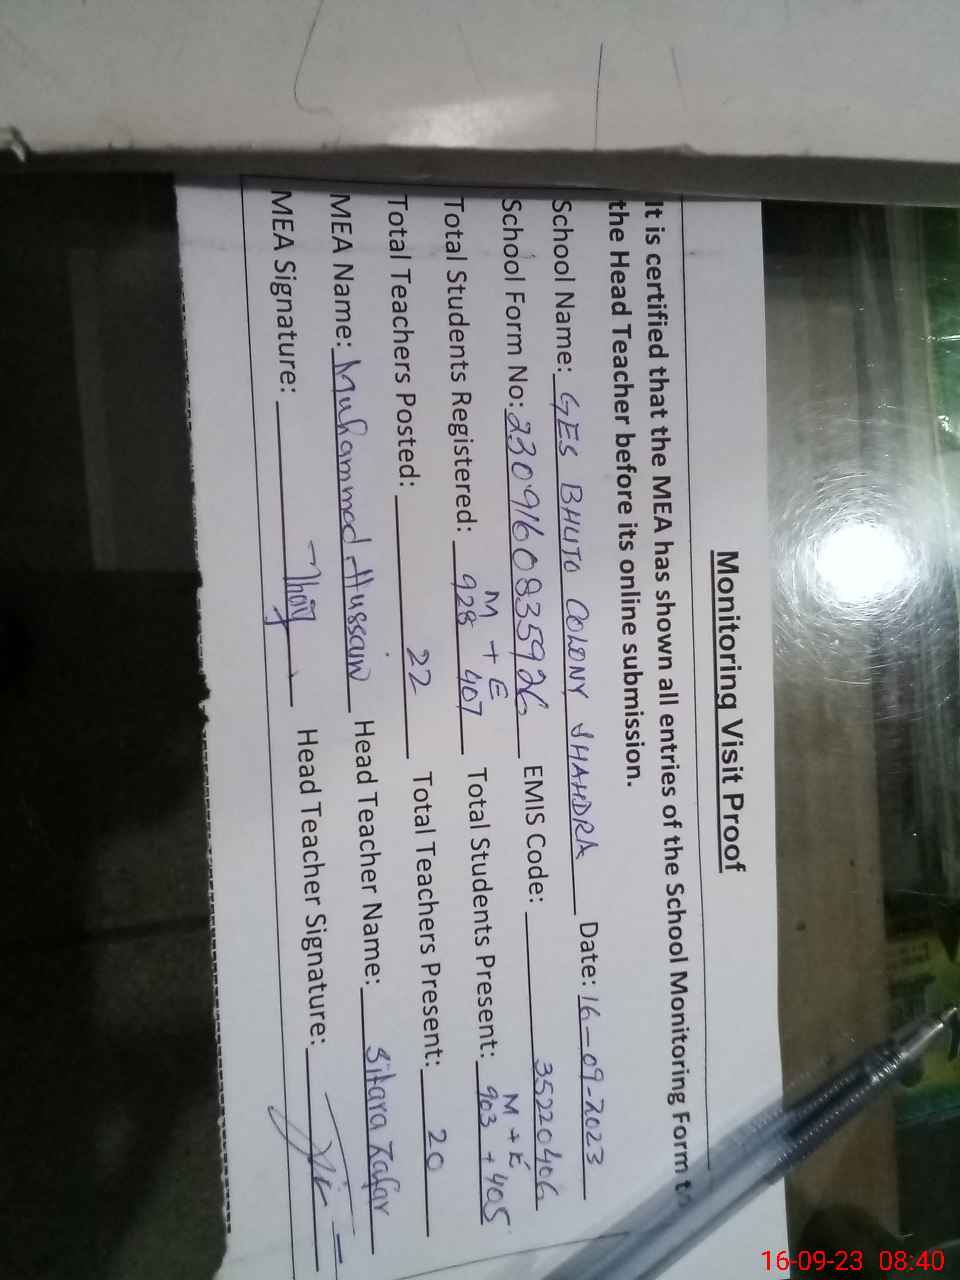 Monitoring Visit Proof
It is certified that the MEA has shown all entries of the School Monitoring Form to
the Head Teacher before its online submission.
School Name: GES BHUTO COLONY SHAHDRA Date: 16-09-2023
School Form No: 2309160835926 EMIS Code: 35220406
M + E M + E
Total Students Registered: 928 + 407 Total Students Present: 903 + 405
Total Teachers Posted: 22 Total Teachers Present: 20
MEA Name: Muhammad Hussain Head Teacher Name: Sitara Zafar
MEA Signature: Head Teacher Signature:
16-09-23 08:40